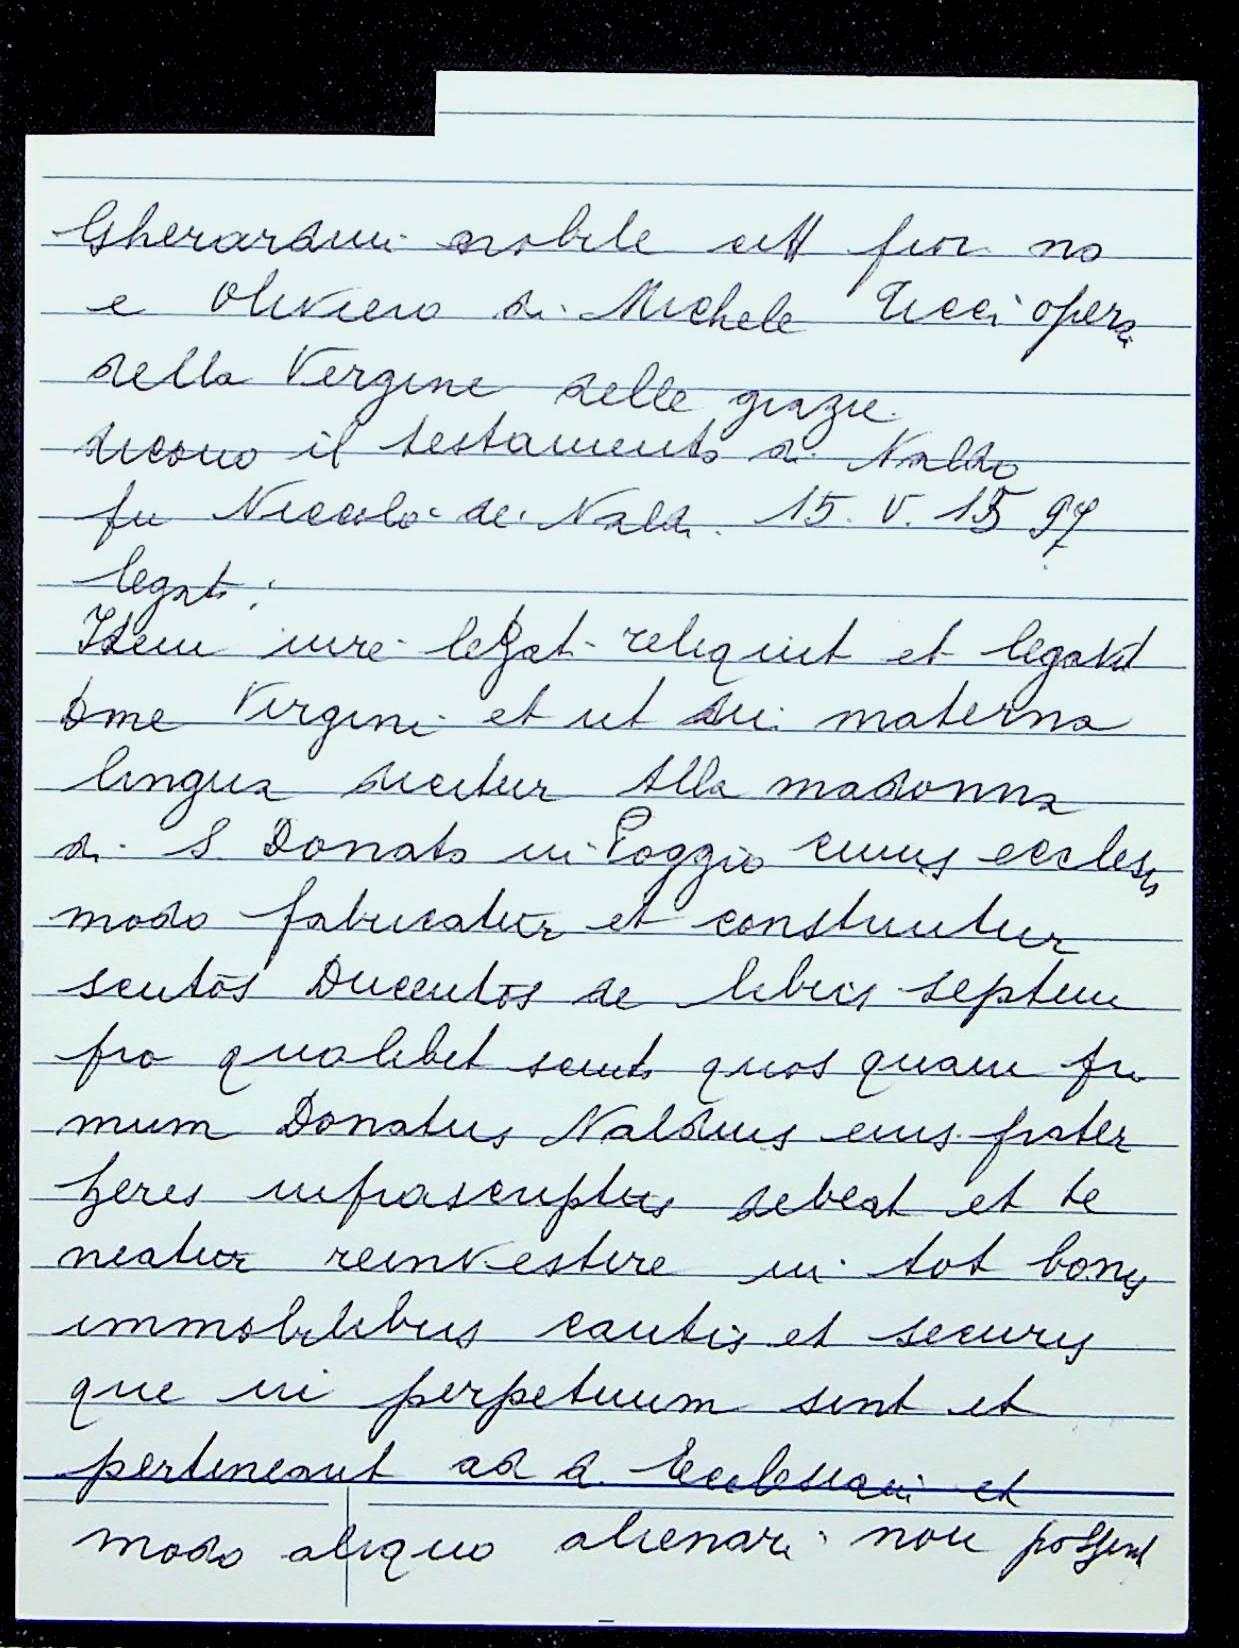 Gherardini nobile citt fior no
e Oliviero di Michele Ticci operai
della Vergine delle grazie
dicono il testamento di Naldo
fu Niccolò de' Naldi 15. V. 1597
legato:
Item iure legati reliquit et legavit
Dme Virgini et ut dici materna
lingua dicitur Alla madonna
di S. Donato in Poggio cuius ecclesia
modo fabricatur et construitur
scutos Ducentos de libris septem
pro qualibet scuto quos quam pri
mum Donatus Naldius eius frater
heres infrascriptus debeat et te
neatur reinvestire in tot bonis
immobilibus cautis et securis
que in perpetuum sint et
pertineant ad d. Ecclesiam et
modo aliquo alienari non possent